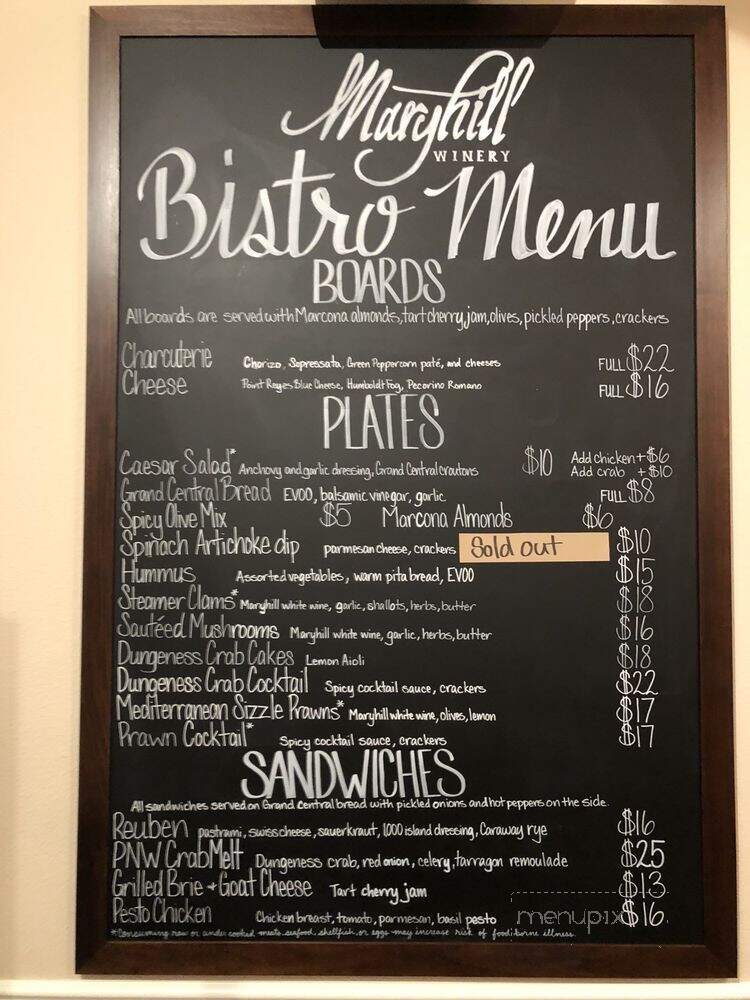 Maryhill
WINERY
Bistro Menu
BOARDS
All boards are served with Marcona almonds, tart cherry jam, olives, pickled peppers, crackers
Charcuterie Chorizo, Sopressata, Green Peppercorn paté, and cheeses FULL $22
Cheese Point Reyes Blue Cheese, Humboldt Fog, Pecorino Romano FULL $16
PLATES
Caesar Salad* Anchovy and garlic dressing, Grand Central croutons $10 Add chicken +$6
Add crab +$10
Grand Central Bread EVOO, balsamic vinegar, garlic FULL $8
Spicy Olive Mix $5 Marcona Almonds $6
Spinach Artichoke dip parmesan cheese, crackers Sold out $10
Hummus Assorted vegetables, warm pita bread, EVOO $15
Steamer Clams* Maryhill white wine, garlic, shallots, herbs, butter $18
Sautéed Mushrooms Maryhill white wine, garlic, herbs, butter $16
Dungeness Crab Cakes Lemon Aioli $18
Dungeness Crab Cocktail Spicy cocktail sauce, crackers $22
Mediterranean Sizzle Prawns* Maryhill white wine, olives, lemon $17
Prawn Cocktail* Spicy cocktail sauce, crackers $17
SANDWICHES
All sandwiches served on Grand Central bread with pickled onions and hot peppers on the side.
Reuben pastrami, swiss cheese, sauerkraut, 1000 island dressing, Caraway rye $16
PNW Crab Melt Dungeness crab, red onion, celery, tarragon remoulade $25
Grilled Brie + Goat Cheese Tart cherry jam $13
Pesto Chicken Chicken breast, tomato, parmesan, basil pesto $16
menupix
*Consuming raw or under cooked meats, seafood, shellfish, or eggs may increase risk of food:borne illness.